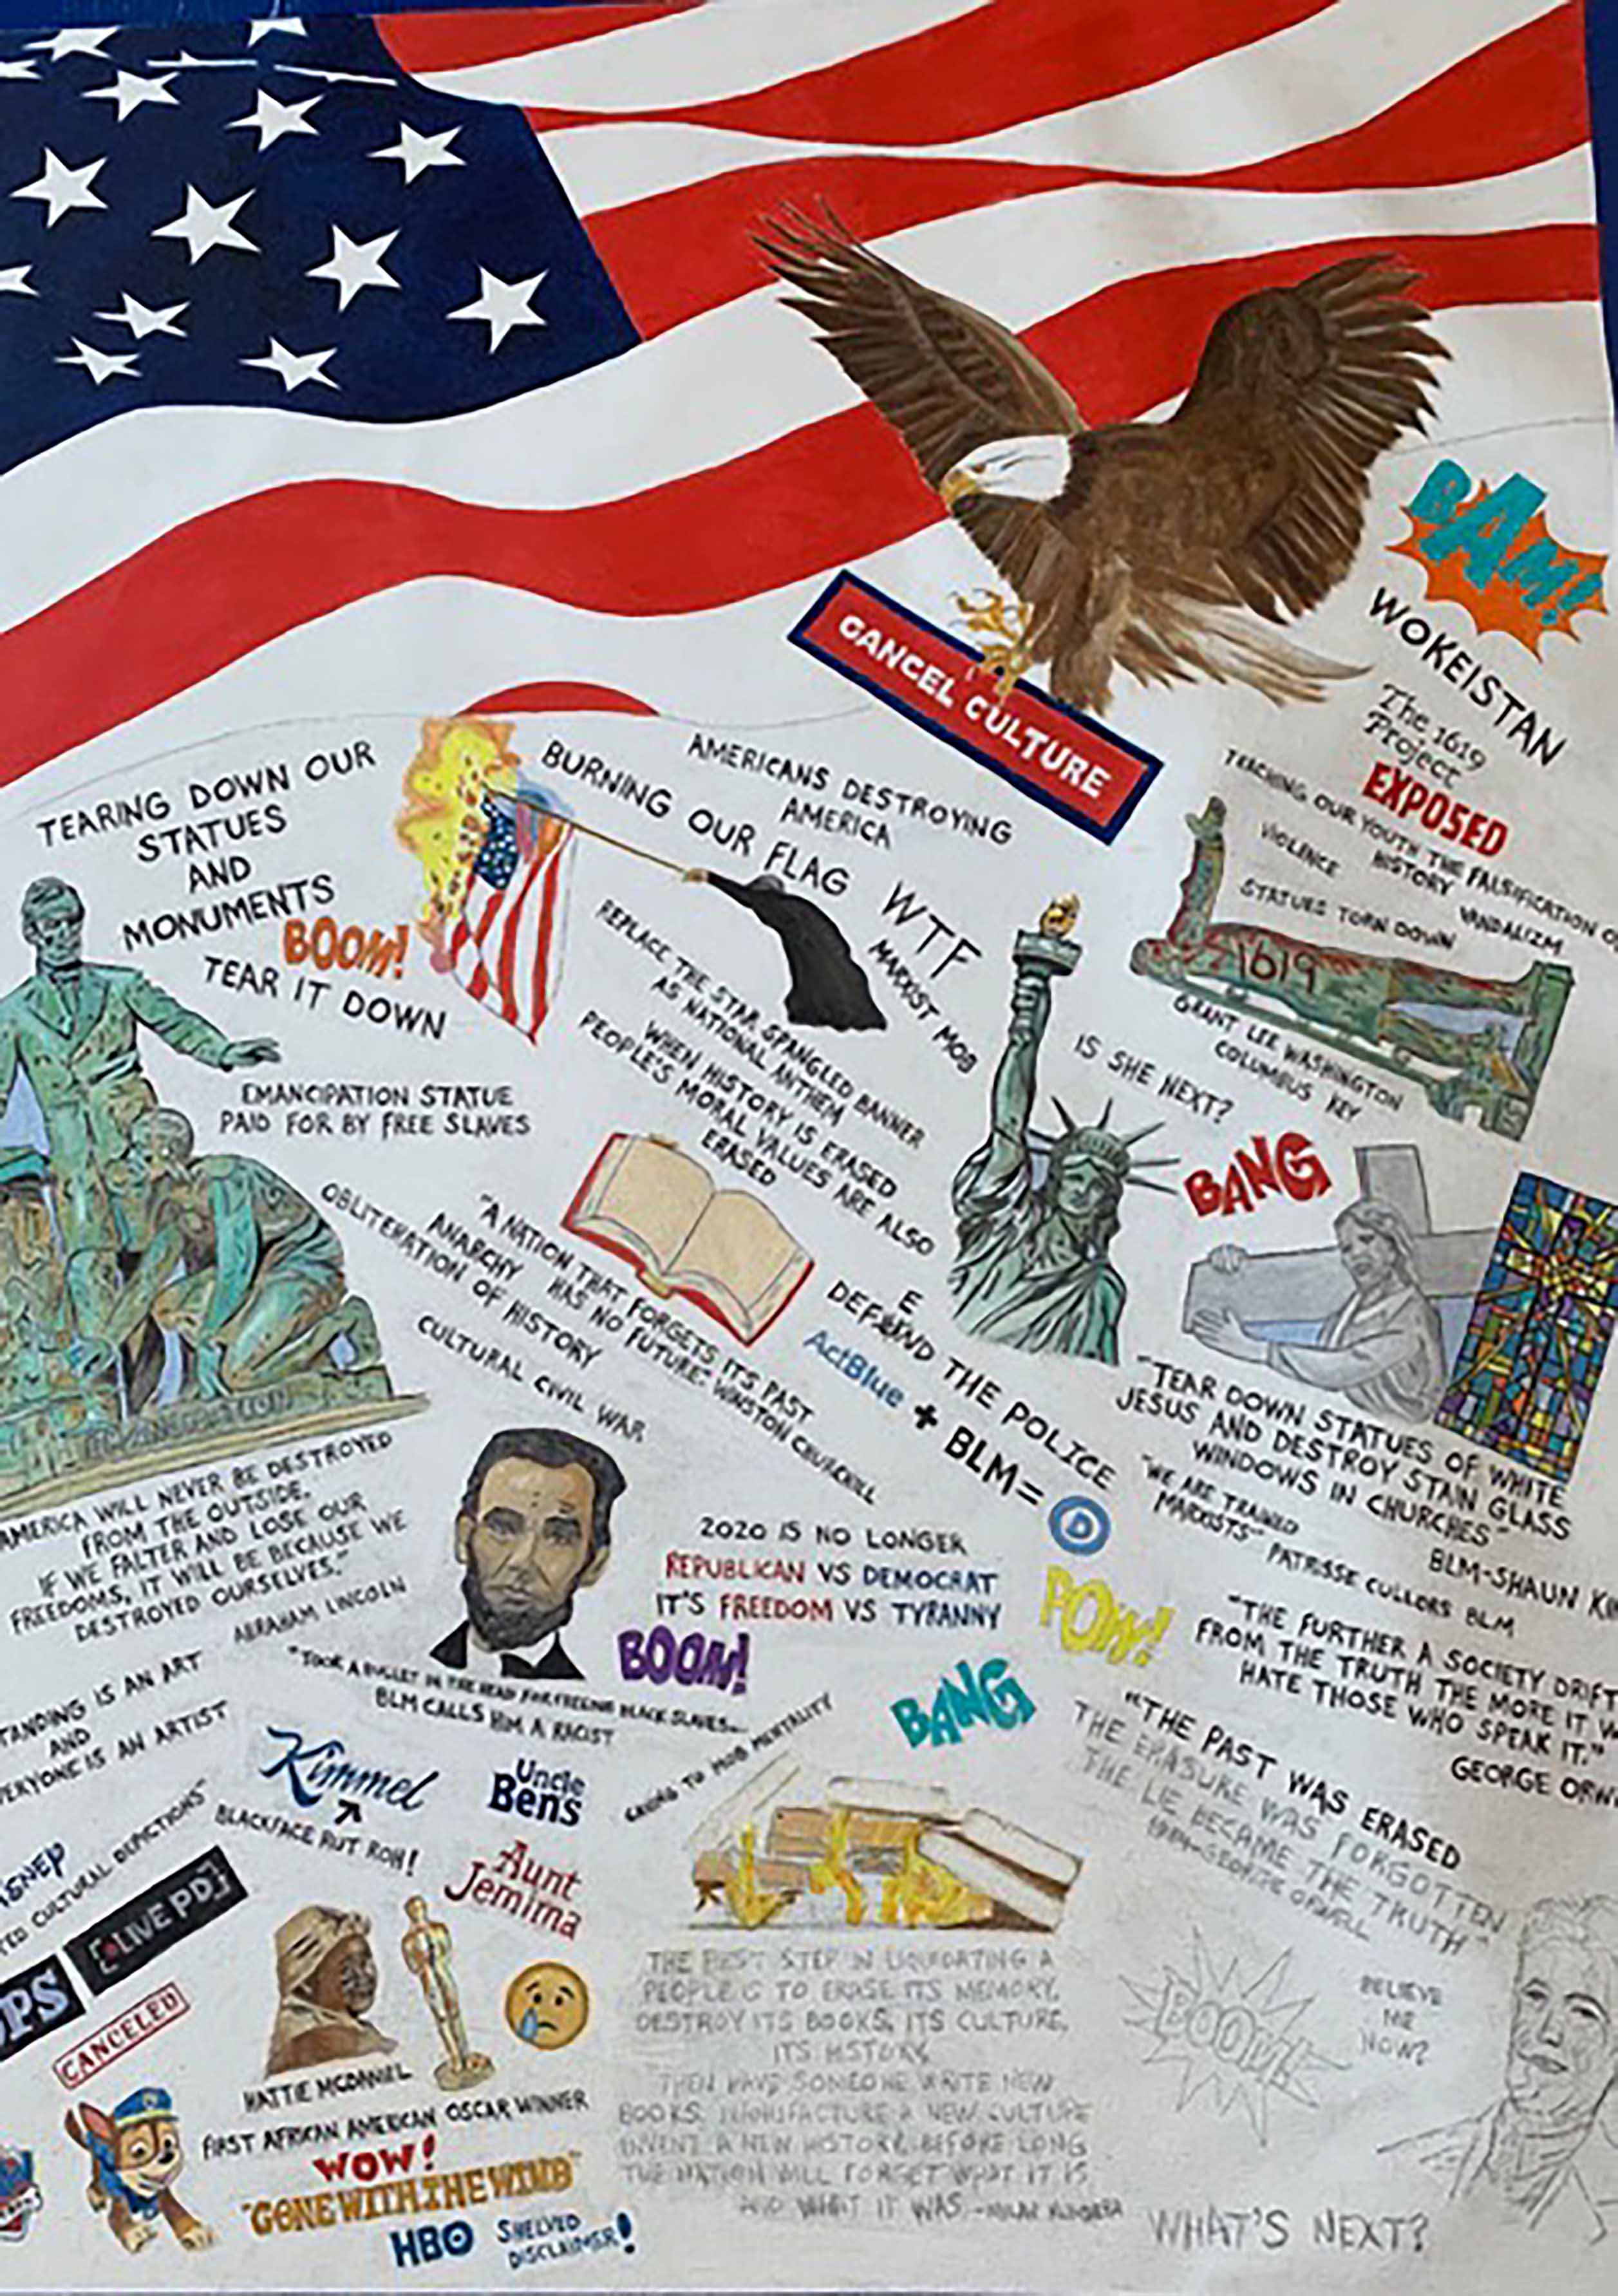 BAM!
WOKEISTAN
CANCEL CULTURE
The 1619
Project
EXPOSED
TEACHING OUR YOUTH THE FALSIFICATION O
HISTORY
VIOLENCE
VANDALIZM
STATUES TORN DOWN
1619
GRANT LEE WASHINGTON
COLUMBUS KEY
TEARING DOWN OUR
STATUES
AND
MONUMENTS
BOOM!
TEAR IT DOWN
AMERICANS DESTROYING
AMERICA
BURNING OUR FLAG WTF
MARXIST MOB
REPLACE THE STAR SPANGLED BANNER
AS NATIONAL ANTHEM
WHEN HISTORY IS ERASED
PEOPLE'S MORAL VALUES ARE ALSO
ERASED
IS SHE NEXT?
BANG
EMANCIPATION STATUE
PAID FOR BY FREE SLAVES
EMANCIPATION
"A NATION THAT FORGETS IT'S PAST
HAS NO FUTURE." WINSTON CHURCHILL
ANARCHY
OBLITERATION OF HISTORY
CULTURAL CIVIL WAR
E
DEFUND THE POLICE
ActBlue + BLM = D
"TEAR DOWN STATUES OF WHITE
JESUS AND DESTROY STAIN GLASS
WINDOWS IN CHURCHES"
BLM-SHAUN KI
"WE ARE TRAINED
MARXISTS" PATRISSE CULLORS BLM
AMERICA WILL NEVER BE DESTROYED
FROM THE OUTSIDE.
IF WE FALTER AND LOSE OUR
FREEDOMS, IT WILL BE BECAUSE WE
DESTROYED OURSELVES."
ABRAHAM LINCOLN
2020 IS NO LONGER
REPUBLICAN VS DEMOCRAT
IT'S FREEDOM VS TYRANNY
BOOM!
POW!
BANG
"TOOK A BULLET IN THE HEAD FOR FREEING BLACK SLAVES...
BLM CALLS HIM A RACIST
"THE FURTHER A SOCIETY DRIFT
FROM THE TRUTH THE MORE IT W
HATE THOSE WHO SPEAK IT."
GEORGE ORW
TANDING IS AN ART
AND
VERYONE IS AN ARTIST
Kimmel
BLACKFACE RUT ROH!
Uncle
Ben's
Aunt
Jemima
CAVING TO MOB MENTALITY
"THE PAST WAS ERASED
THE ERASURE WAS FORGOTTEN
THE LIE BECAME THE TRUTH"
1984-GEORGE ORWELL
ISNEP
TED CULTURAL DEPICTIONS"
LIVE PD
OPS
CANCELED
HATTIE MCDANIEL
FIRST AFRICAN AMERICAN OSCAR WINNER
WOW!
"GONE WITH THE WIND"
HBO SHELVED
DISCLAIMER!
THE FIRST STEP IN LIQUIDATING A
PEOPLE IS TO ERASE ITS MEMORY.
DESTROY ITS BOOKS, ITS CULTURE,
ITS HISTORY.
THEN HAVE SOMEONE WRITE NEW
BOOKS, MANUFACTURE A NEW CULTURE
INVENT A NEW HISTORY. BEFORE LONG
THE NATION WILL FORGET WHAT IT IS
AND WHAT IT WAS.-MILAN KUNDERA
BOOM!
BELIEVE
ME
NOW?
WHAT'S NEXT?